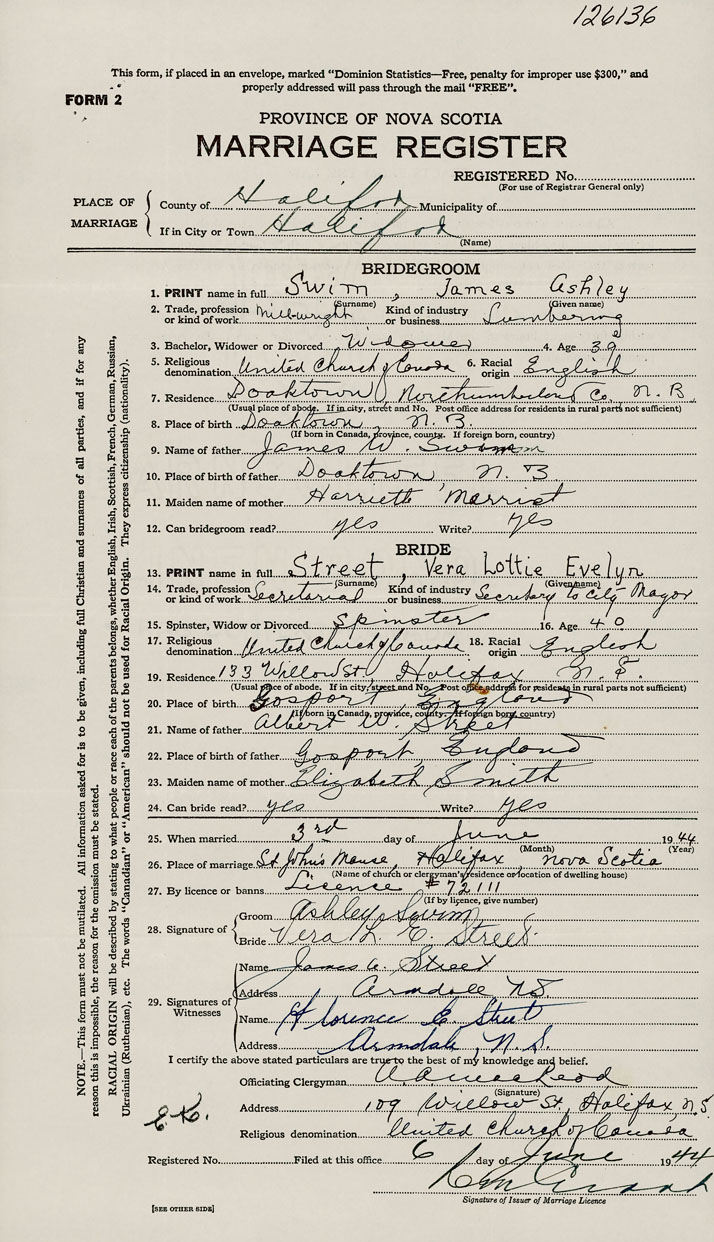 126136
This form, if placed in an envelope, marked "Dominion Statistics—Free, penalty for improper use $300," and
properly addressed will pass through the mail "FREE".
FORM 2
PROVINCE OF NOVA SCOTIA
MARRIAGE REGISTER
REGISTERED No.
(For use of Registrar General only)
PLACE OF MARRIAGE
County of Halifax Municipality of
If in City or Town Halifax
(Name)
BRIDEGROOM
1. PRINT name in full Swim, James Ashley
(Surname) (Given name)
2. Trade, profession or kind of work Millwright Kind of industry or business Lumbering
3. Bachelor, Widower or Divorced Widower 4. Age 39
5. Religious denomination United Church of Canada 6. Racial origin English
7. Residence Doaktown, Northumberland Co. N.B
(Usual place of abode. If in city, street and No. Post office address for residents in rural parts not sufficient)
8. Place of birth Doaktown, N.B.
(If born in Canada, province, county. If foreign born, country)
9. Name of father James W. Swim
10. Place of birth of father Doaktown N.B
11. Maiden name of mother Harriette
12. Can bridegroom read? yes Write? yes
BRIDE
13. PRINT name in full Street, Vera Lottie Evelyn
(Surname) (Given name)
14. Trade, profession or kind of work Secretarial Kind of industry or business Secretary to City Mayor
15. Spinster, Widow or Divorced Spinster 16. Age 40
17. Religious denomination United Church of Canada 18. Racial origin English
19. Residence 133 Willow St, Halifax N.S.
(Usual place of abode. If in city, street and No. Post office address for residents in rural parts not sufficient)
20. Place of birth Gosport England
(If born in Canada, province, county. If foreign born, country)
21. Name of father Albert W. Street
22. Place of birth of father Gosport, England
23. Maiden name of mother Elizabeth Smith
24. Can bride read? yes Write? yes
25. When married 3rd day of June 1944
(Month) (Year)
26. Place of marriage St John's Manse, Halifax, Nova Scotia
(Name of church or clergyman's residence or location of dwelling house)
27. By licence or banns License #72111
(If by licence, give number)
28. Signature of
Groom Ashley Swim
Bride Vera L. E. Street
29. Signatures of Witnesses
Name James A. Street
Address Armdale N.S.
Name Florence E. Street
Address Armdale, N.S.
I certify the above stated particulars are true to the best of my knowledge and belief.
Officiating Clergyman
(Signature)
E.K.
Address 109 Willow St, Halifax N.S.
Religious denomination United Church of Canada
Registered No. Filed at this office 6 day of June 1944
Signature of Issuer of Marriage Licence
[SEE OTHER SIDE]
NOTE.—This form must not be mutilated. All information asked for is to be given, including full Christian and surnames of all parties, and if for any
reason this is impossible, the reason for the omission must be stated.
RACIAL ORIGIN will be described by stating to what people or race each of the parents belongs, whether English, Irish, Scottish, French, German, Russian,
Ukrainian (Ruthenian), etc. The words "Canadian" or "American" should not be used for Racial Origin. They express citizenship (nationality).